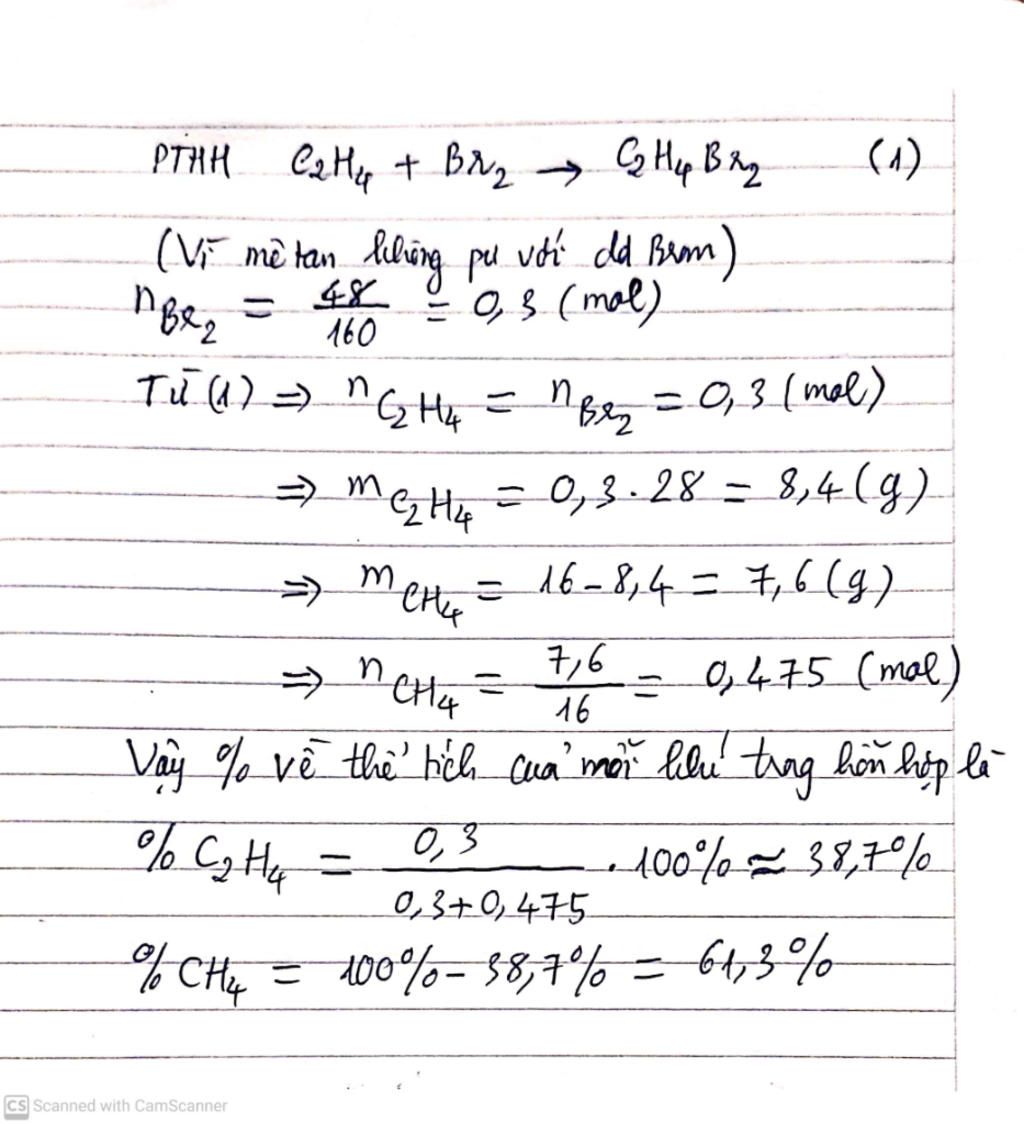 PTHH C₂H₄ + Br₂ → C₂H₄Br₂ (1)
(Vì mêtan không pư với dd Brom)
n Br₂ = 48/160 = 0,3 (mol)
Từ (1) ⇒ n C₂H₄ = n Br₂ = 0,3 (mol)
⇒ m C₂H₄ = 0,3 . 28 = 8,4 (g)
⇒ m CH₄ = 16 - 8,4 = 7,6 (g)
⇒ n CH₄ = 7,6/16 = 0,475 (mol)
Vậy % về thể tích của mỗi khí trong hỗn hợp là
% C₂H₄ = 0,3/(0,3+0,475) . 100% ≈ 38,7%
% CH₄ = 100% - 38,7% = 61,3%
CS Scanned with CamScanner